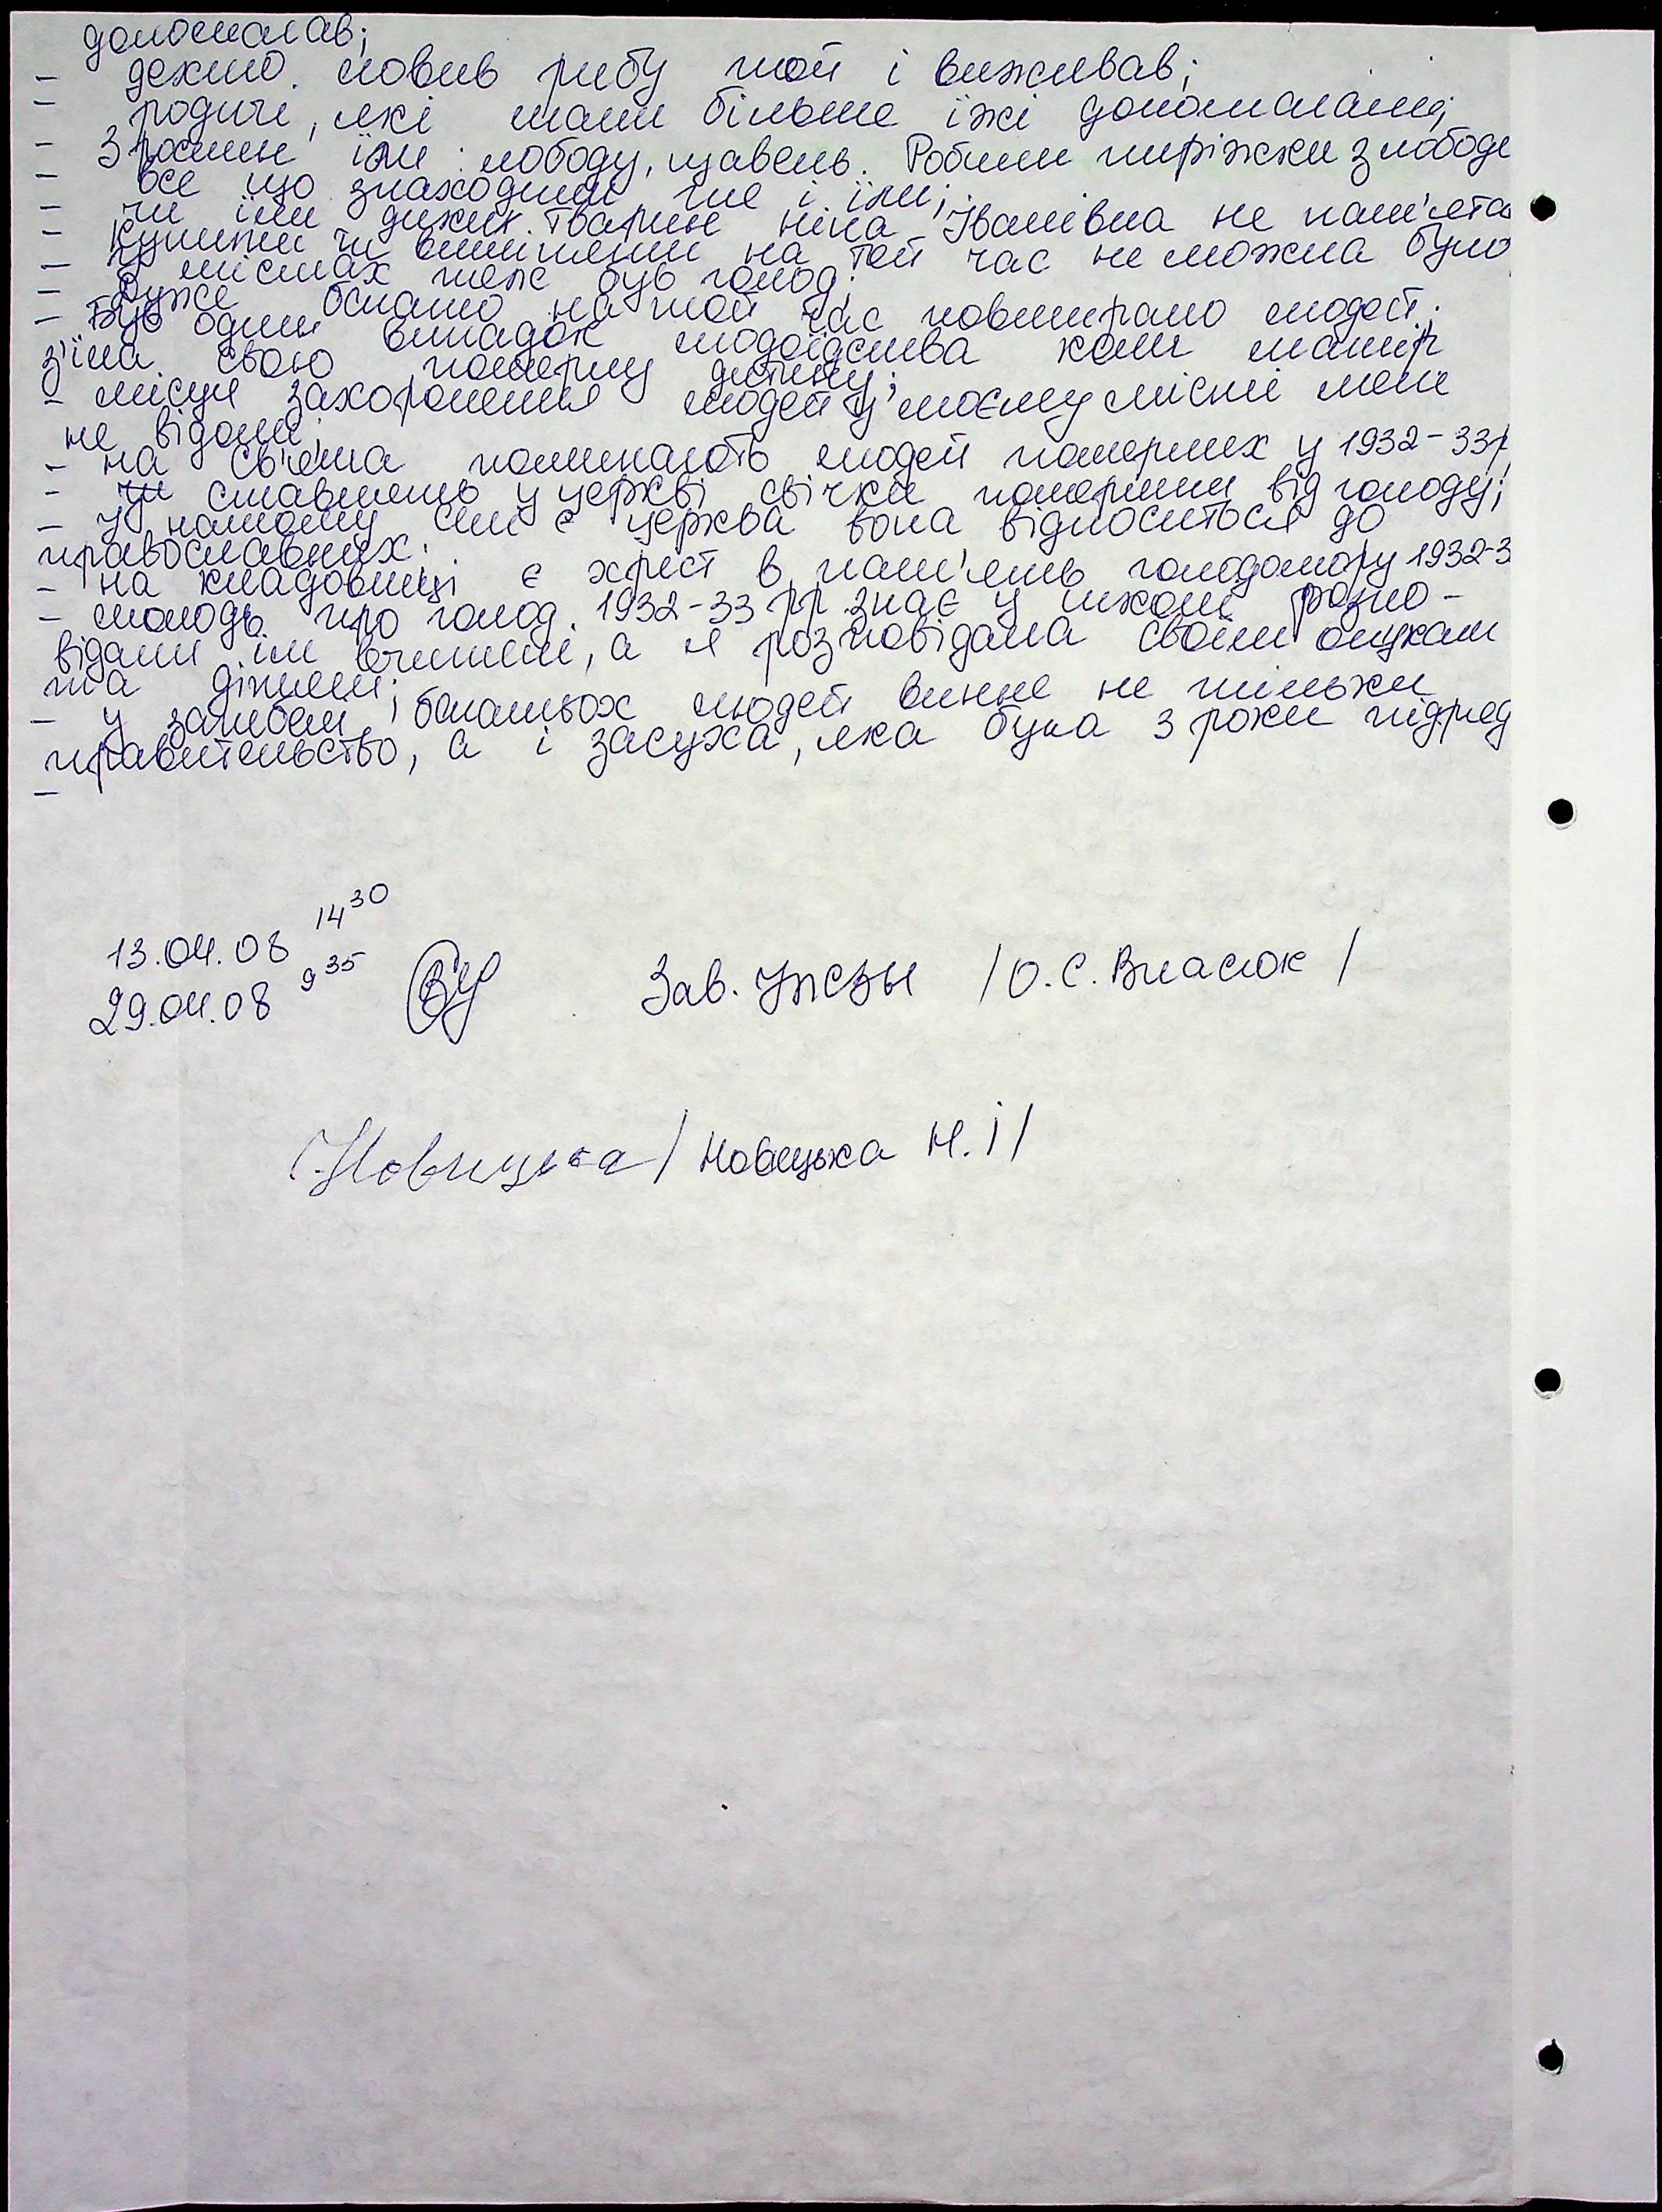 допомагав;
- дехто ловив рибу той і виживав;
- родичі, які мали більше їжі допомагали;
- З рослин їли: лободу, щавель. Робили пиріжки з лободи
- все що знаходили те і їли;
- чи їли диких тварин Ніна Іванівна не пам'ята
- купити чи виміняти на той час не можна було
- в містах теж був голод;
- Дуже багато на той час повмирало людей;
- Був один випадок людоїдства коли матір
з'їла свою померлу дитину;
- місця захоронення людей у моєму місті мені
не відомі;
- на свята поминають людей померлих у 1932-33р
- чи ставлять у церкві свічки померлим від голоду;
- у нашому селі є церква вона відноситься до
православних.
- на кладовищі є хрест в пам'ять голодомору 1932-3
- молодь про голод 1932-33 рр. знає у школі розпо-
відали їм вчителі, а я розповідала своїм онукам
та дітям;
- у загибелі багатьох людей винне не тільки
правительство, а і засуха, яка була 3 роки підряд
-
13.04.08 14 30
29.04.08 9 35
Зав. /О.С. Власюк/
Новицька / Новицька Н.І/